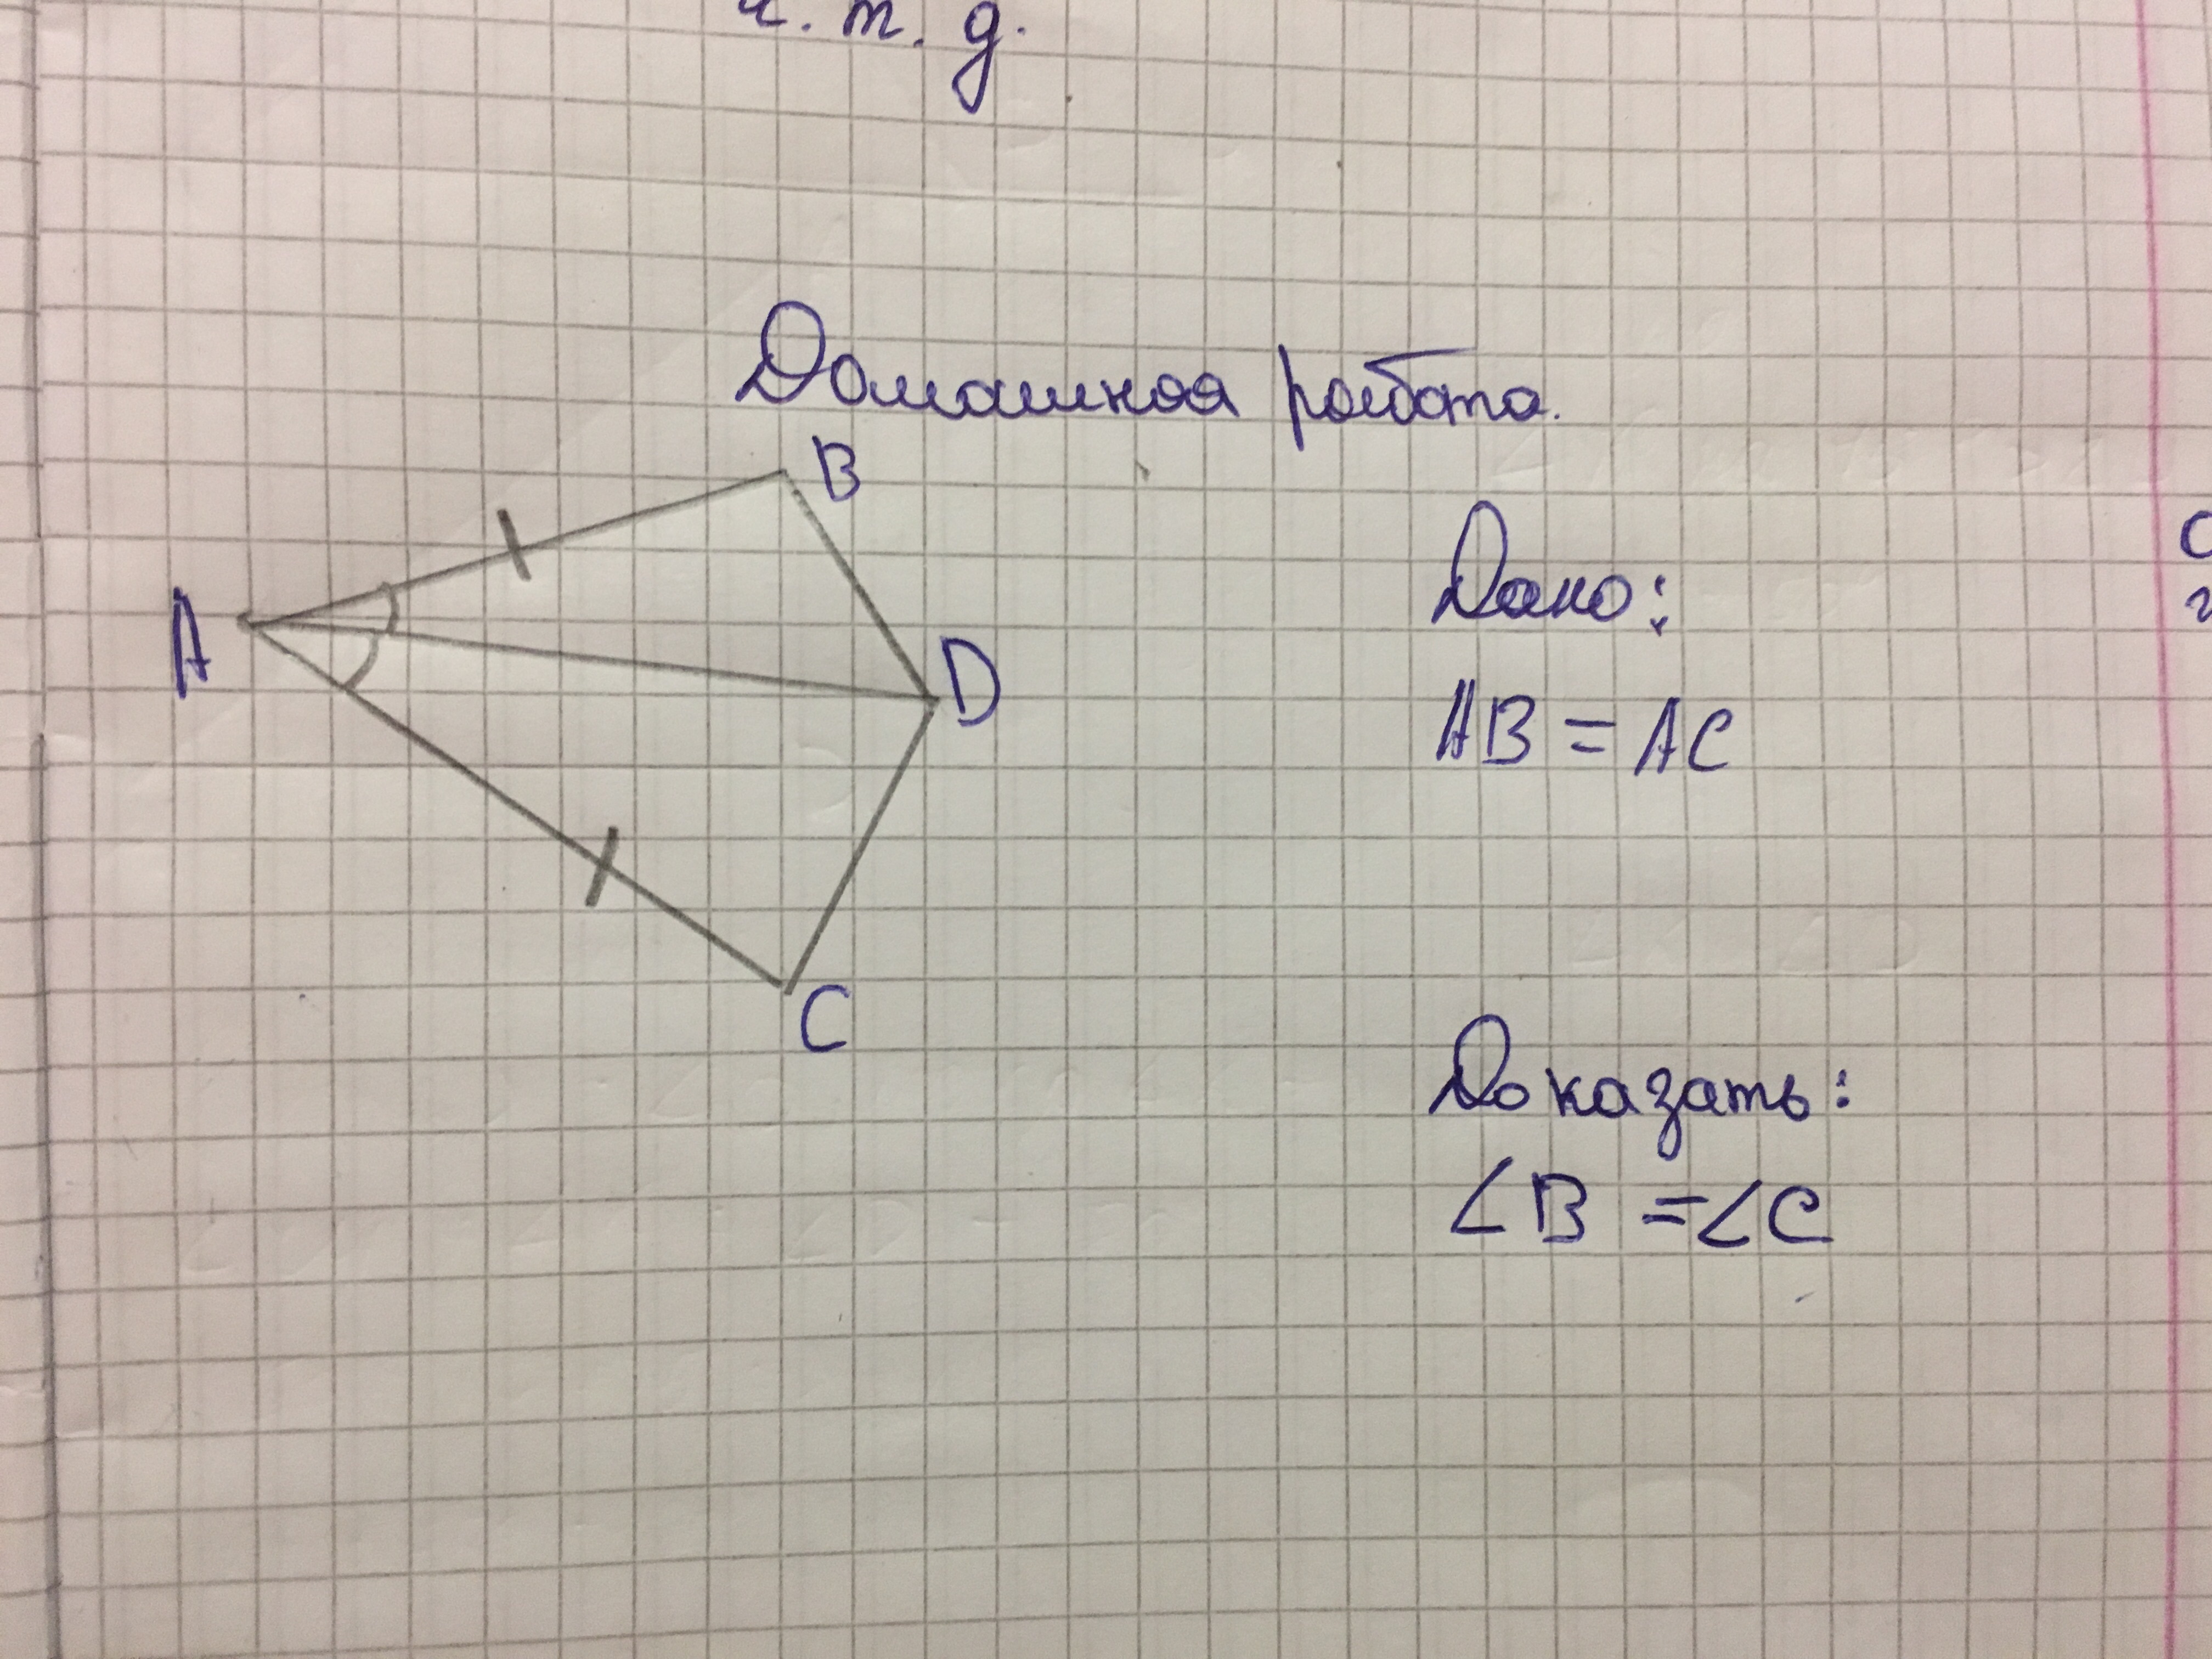 ч. т. д.
Домашняя работа.
B
Дано:
A
D
AB = AC
C
Доказать:
∠B = ∠C